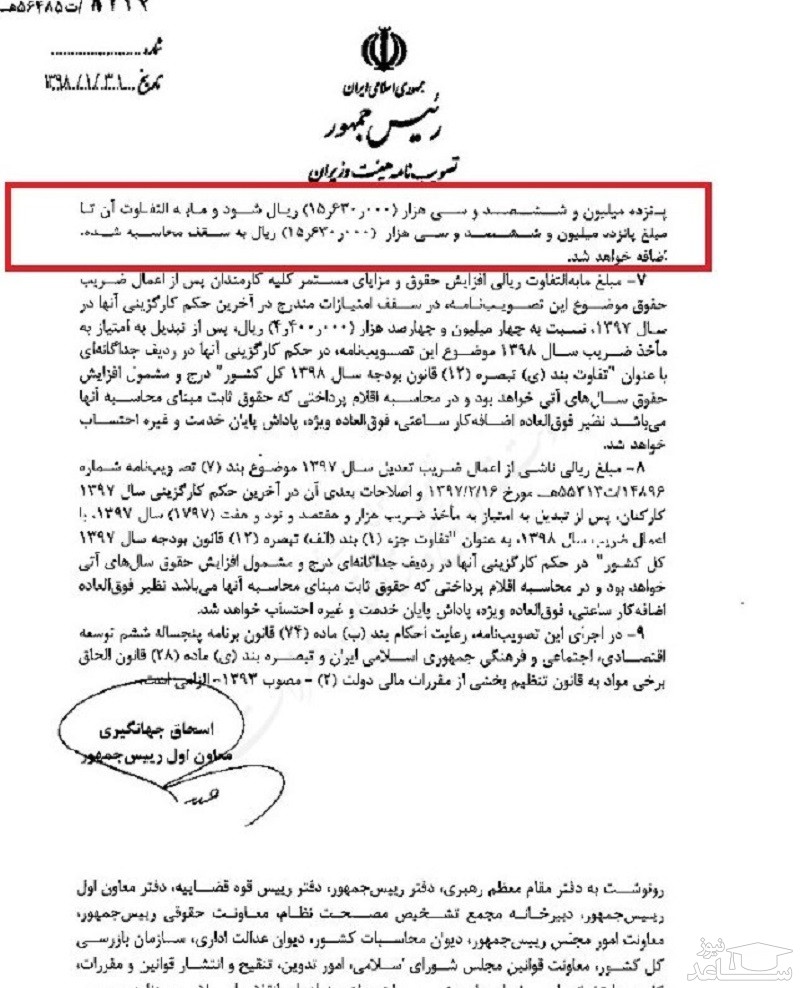 /ت۵۶۴۸۵هـ
شماره
تاریخ ۱۳۹۸/۱/۳۱
جمهوری اسلامی ایران
رئیس جمهور
تصویب نامه هیئت وزیران
پانزده میلیون و ششصد و سی هزار (۱۵٫۶۳۰٫۰۰۰) ریال شود و مابه التفاوت آن تا
مبلغ پانزده میلیون و ششصد و سی هزار (۱۵٫۶۳۰٫۰۰۰) ریال به سقف محاسبه شده،
اضافه خواهد شد.
۷- مبلغ مابه‌التفاوت ریالی افزایش حقوق و مزایای مستمر کلیه کارمندان پس از اعمال ضریب
حقوق موضوع این تصویب‌نامه، در سقف امتیازات مندرج در آخرین حکم کارگزینی آنها در
سال ۱۳۹۷، نسبت به چهار میلیون و چهارصد هزار (۴٫۴۰۰٫۰۰۰) ریال، پس از تبدیل به امتیاز به
مأخذ ضریب سال ۱۳۹۸ موضوع این تصویب‌نامه، در حکم کارگزینی آنها در ردیف جداگانه‌ای
با عنوان "تفاوت بند (ی) تبصره (۱۲) قانون بودجه سال ۱۳۹۸ کل کشور" درج و مشمول افزایش
حقوق سال‌های آتی خواهد بود و در محاسبه اقلام پرداختی که حقوق ثابت مبنای محاسبه آنها
می‌باشد نظیر فوق‌العاده اضافه‌کار ساعتی، فوق‌العاده ویژه، پاداش پایان خدمت و غیره احتساب
خواهد شد.
۸- مبلغ ریالی ناشی از اعمال ضریب تعدیل سال ۱۳۹۷ موضوع بند (۷) تصویب‌نامه شماره
۱۴۸۹۶/ت۵۵۳۱۳هـ مورخ ۱۳۹۷/۲/۱۶ و اصلاحات بعدی آن در آخرین حکم کارگزینی سال ۱۳۹۷
کارکنان، پس از تبدیل به امتیاز به مأخذ ضریب هزار و هفتصد و نود و هفت (۱۷۹۷) سال ۱۳۹۷، با
اعمال ضریب سال ۱۳۹۸، به عنوان "تفاوت جزء (۱) بند (الف) تبصره (۱۲) قانون بودجه سال ۱۳۹۷
کل کشور" در حکم کارگزینی آنها در ردیف جداگانه‌ای درج و مشمول افزایش حقوق سال‌های آتی
خواهد بود و در محاسبه اقلام پرداختی که حقوق ثابت مبنای محاسبه آنها می‌باشد نظیر فوق‌العاده
اضافه‌کار ساعتی، فوق‌العاده ویژه، پاداش پایان خدمت و غیره احتساب خواهد شد.
۹- در اجرای این تصویب‌نامه، رعایت احکام بند (ب) ماده (۷۴) قانون برنامه پنجساله ششم توسعه
اقتصادی، اجتماعی و فرهنگی جمهوری اسلامی ایران و تبصره بند (ی) ماده (۲۸) قانون الحاق
برخی مواد به قانون تنظیم بخشی از مقررات مالی دولت (۲) - مصوب ۱۳۹۳- الزامی است.
اسحاق جهانگیری
معاون اول رییس‌جمهور
رونوشت به دفتر مقام معظم رهبری، دفتر رییس‌جمهور، دفتر رییس قوه قضاییه، دفتر معاون اول
رییس‌جمهور، دبیرخانه مجمع تشخیص مصلحت نظام، معاونت حقوقی رییس‌جمهور،
معاونت امور مجلس رییس‌جمهور، دیوان محاسبات کشور، دیوان عدالت اداری، سازمان بازرسی
کل کشور، معاونت قوانین مجلس شورای اسلامی، امور تدوین، تنقیح و انتشار قوانین و مقررات،
نیوز
ساعد